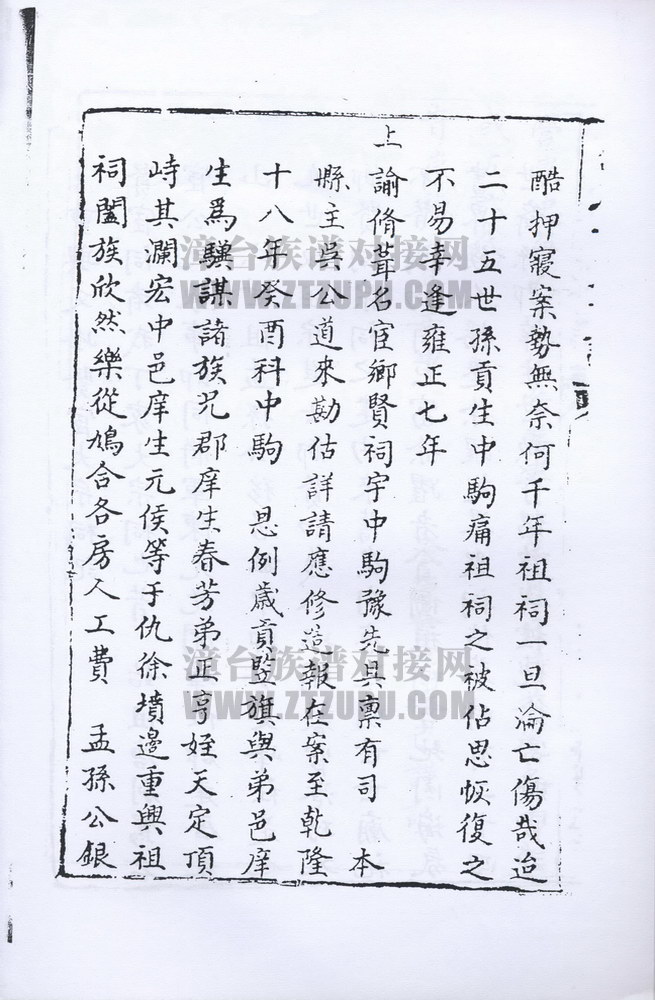 酷押寢案勢無奈何千年祖祠一旦淪亡傷哉迨
二十五世孫貢生中駒痛祖祠之被佔思恢復之
不易幸逢雍正七年
上諭脩葺名宦鄉賢祠宇中駒豫先具禀有司 本
縣主吳公道來勘估詳請應修造報在案至乾隆
十八年癸酉科中駒 恩例歲貢監旗與弟邑庠
生為驥謀諸族兄郡庠生春芳弟正亨姪天定頂
峙其瀾宏中邑庠生元侯等于仇徐墳邊重興祖
祠闔族欣然樂從鳩合各房人工費 孟孫公銀
漳台族谱对接网
WWW.ZTZUPU.COM
漳台族谱对接网
WWW.ZTZUPU.COM